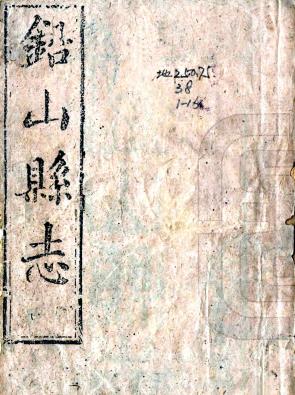 鉛山縣志
地250.75
38